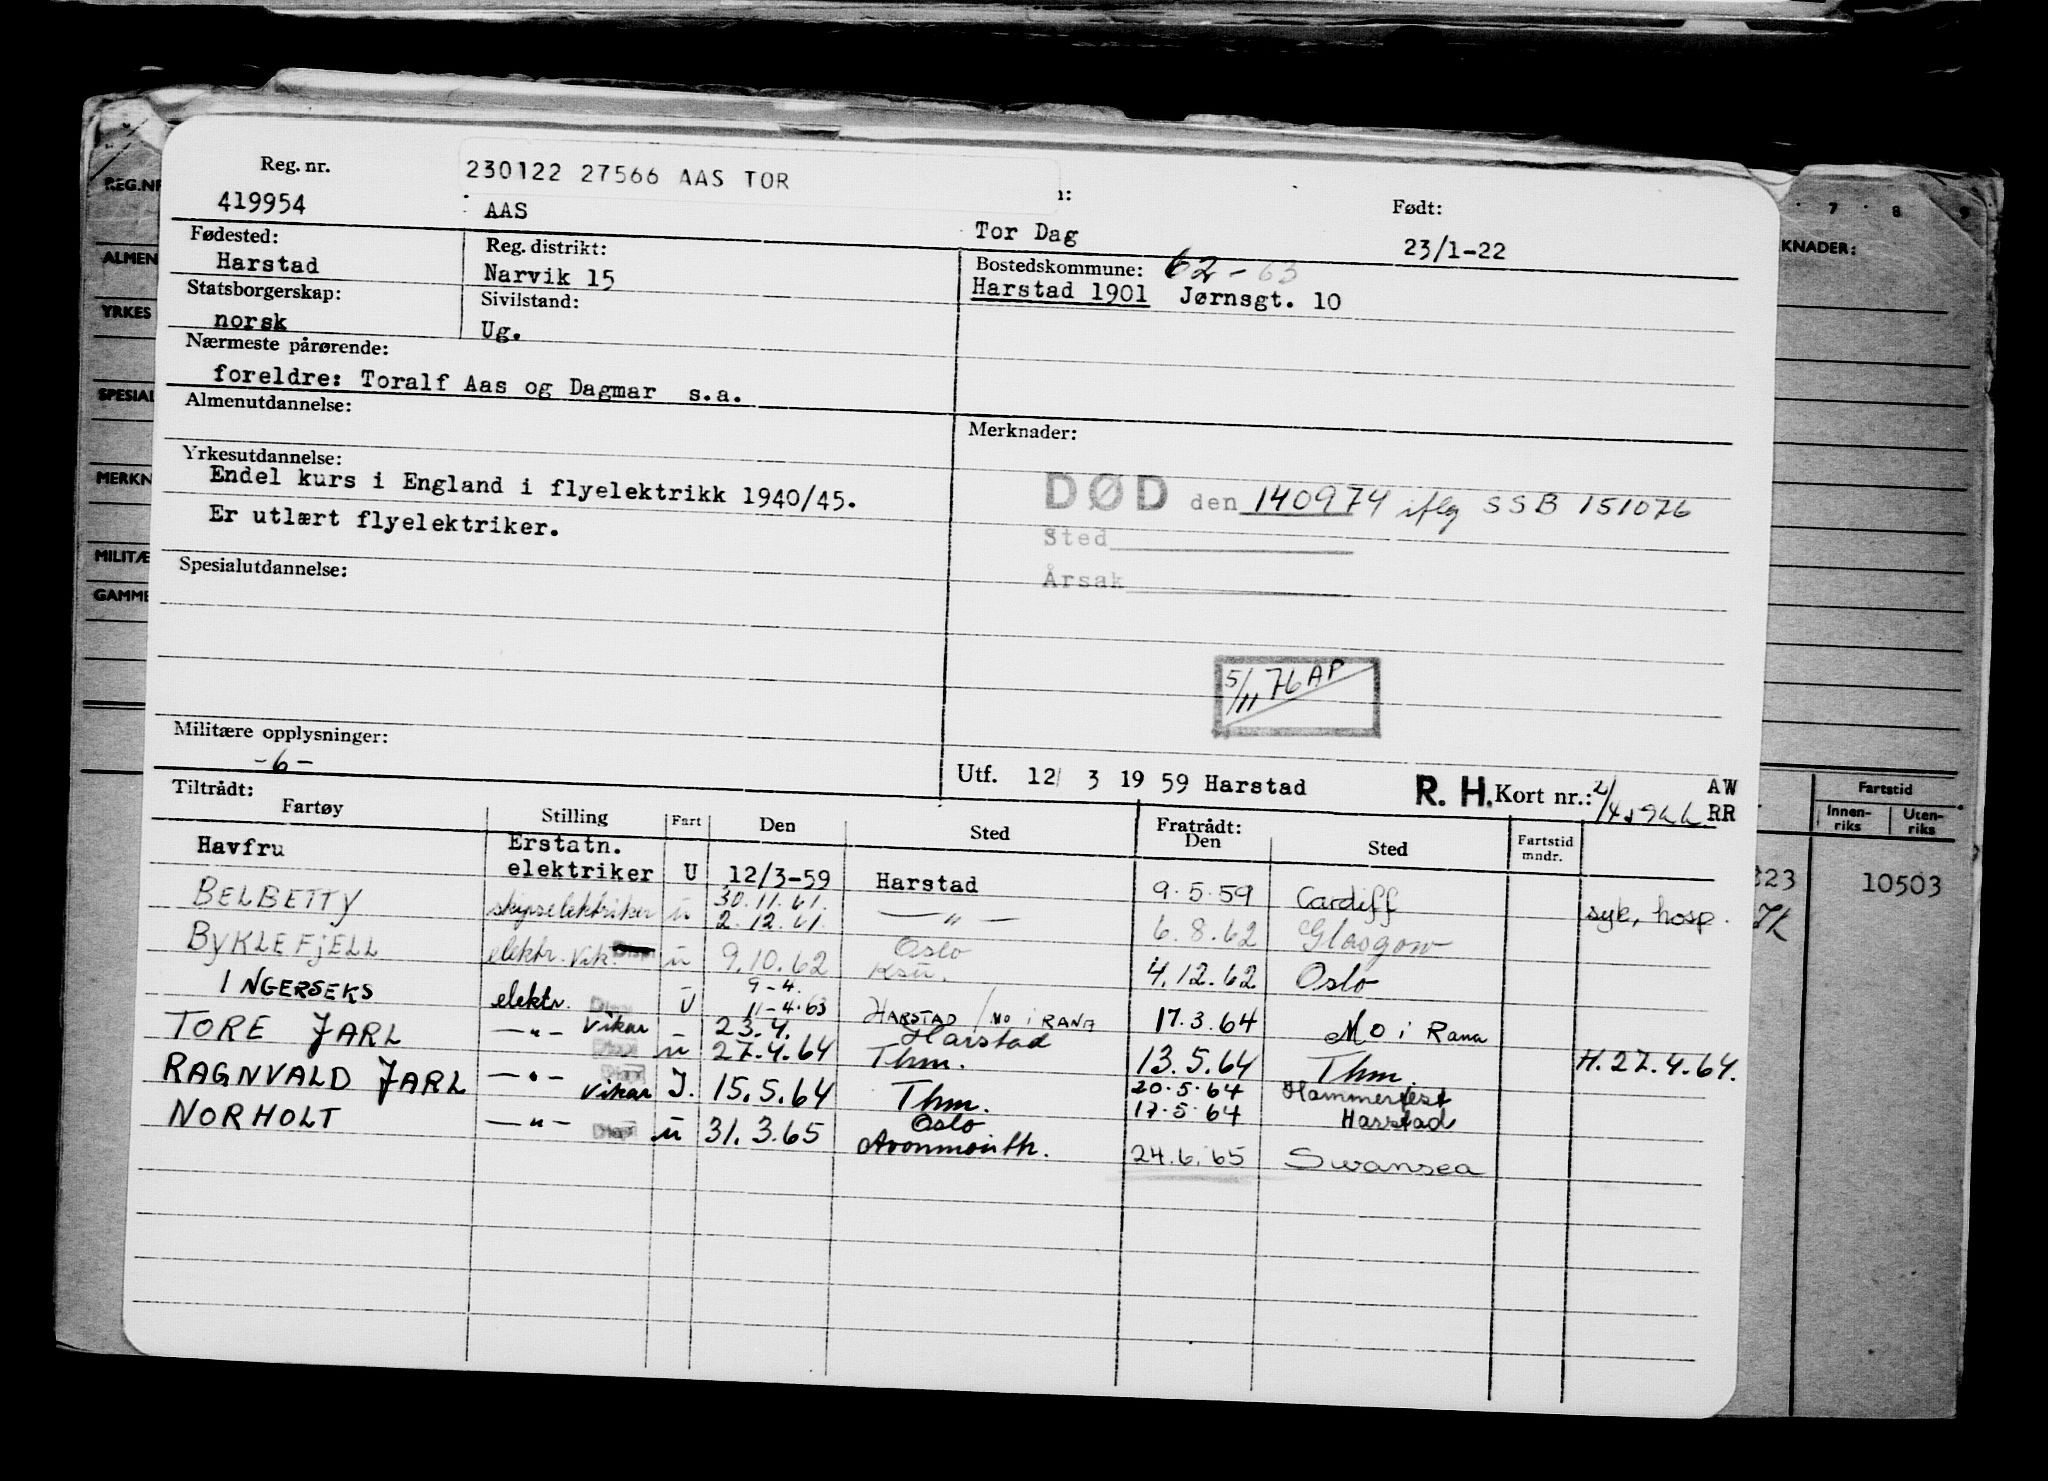 230122 27566 AAS TOR
Reg. nr.
419954
AAS
Tor Dag
Født:
23/1-22
Fødested:
Harstad
Reg. distrikt:
Narvik 15
Bostedskommune: 62-63
Harstad 1901 Jørnsgt. 10
Statsborgerskap:
norsk
Sivilstand:
Ug.
Nærmeste pårørende:
foreldre: Toralf Aas og Dagmar s.a.
Almenutdannelse:
Merknader:
Yrkesutdannelse:
Endel kurs i England i flyelektrikk 1940/45.
Er utlært flyelektriker.
DØD den 140974 iflg SSB 151076
Sted
Årsak
Spesialutdannelse:
5/11 76 AP
Militære opplysninger:
-6-
Utf. 12/ 3 19 59 Harstad
R. H. Kort nr.:
AW
RR
Tiltrådt:
Fartøy Stilling Fart Den Sted Fratrådt: Den Sted Fartstid mndr.
Havfru Erstatn. elektriker U 12/3-59 Harstad 9.5.59 Cardiff syk, hosp.
BELBETTY skipselektriker u 30.11.61. 2.12.61. —"— 6.8.62 Glasgow
BYKLEFJELL elektr. vik. u 9.10.62 Oslo 4.12.62 Oslo
INGERSEKS elektr. U 9-4. 11-4.63 HARSTAD / MO i RANA 17.3.64 Mo i Rana
TORE JARL —"— Vikar u 23.4. 27.4.64 Harstad Thm. 13.5.64 Thm. H.27.4.64.
RAGNVALD JARL —"— Vikar J. 15.5.64 Thm. 20.5.64 Hammerfest 17.5.64 Harstad
NORHOLT —"— u 31.3.65 Oslo Avonmouth. 24.6.65 Swansea
REG.NR
ALMEN
YRKES
SPESIAL
MERKN
MILITÆ
GAMME
7 8 9
KNADER:
Fartstid
Innen-riks
Uten-riks
323
10503